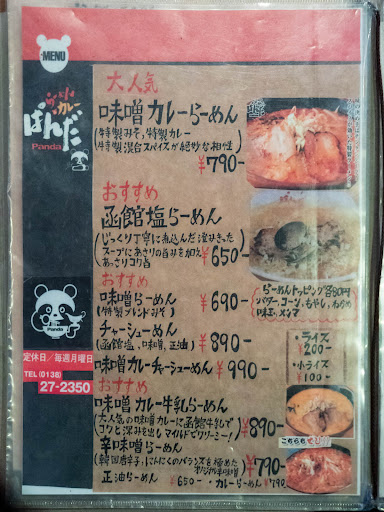 MENU
らーめん
カレー
ぱんだ
Panda
大人気
味噌カレーらーめん
(特製みそ,特製カレー
特製混合スパイスが絶妙な相性)
¥790-
おすすめ
函館塩らーめん
(じっくり丁寧に煮込んだ澄みきった
スープにあさりの旨みを加え
あっさりコク旨)
¥650-
おすすめ
味噌らーめん ¥690-
(特製ブレンドみそ)
らーめんトッピング各80円
バター、コーン、もやし、ねりうめ
味玉、メンマ
チャーシューめん ¥890-
(函館塩,味噌,正油)
味噌カレーチャーシューめん ¥990-
・ライス
200-
・小ライス
¥100-
Panda
定休日/毎週月曜日
TEL(0138)
27-2350
おすすめ
味噌カレー牛乳らーめん
(大人気の味噌カレーに函館牛乳で
コクと深みを出しマイルドでクリーミー!)
¥890-
こちらも
辛味噌らーめん
(韓国唐辛子,にんにくのバランスを極めた
¥790-
正油らーめん ¥650-
・カレーらーめん ¥790